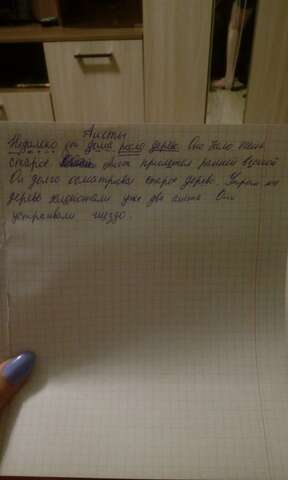 Аисты
Недалеко от дома росло дерево. Оно было очень
старое. Аист прилетел ранней весной
Он долго осматривал старое дерево. Утром на
дереве хлопотали уже два аиста Они
устраивали гнездо.